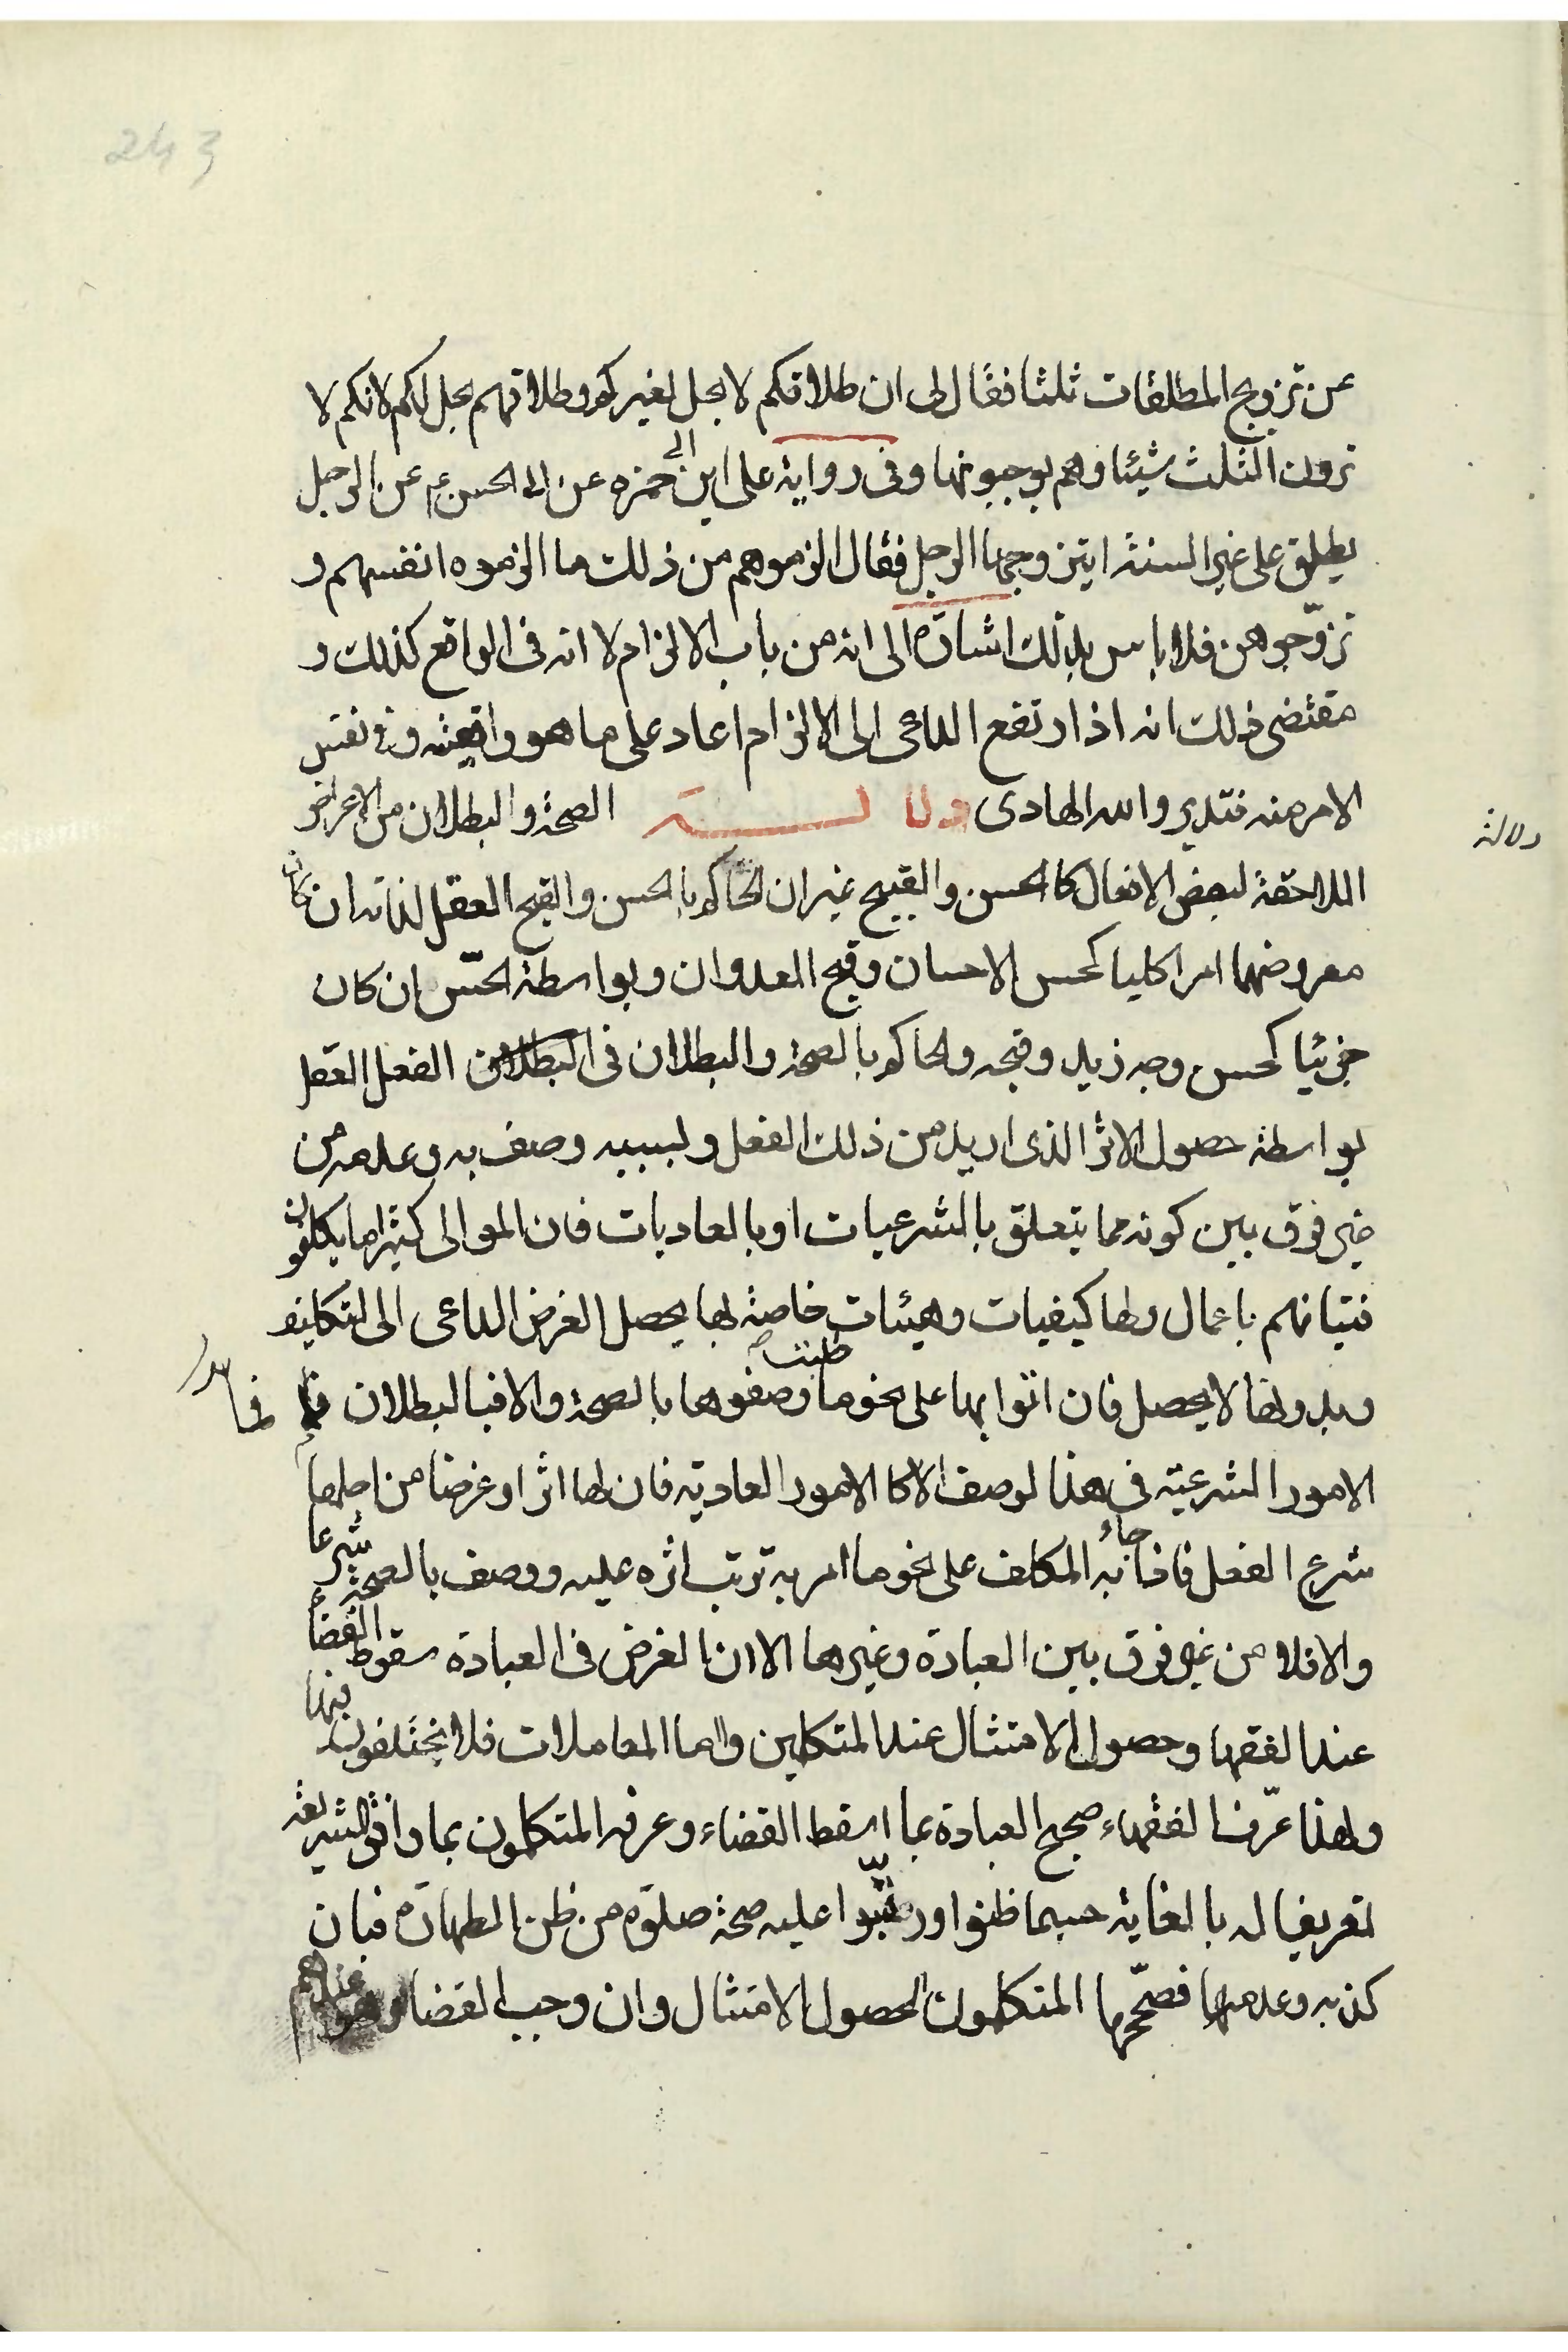 243
عن تزويج المطلقات ثلثا فقال لى ان طلاقكم لا يحل لغيركم وطلاقهم يحل لكم لانكم لا
ترون الثلث شيئا وهم يوجبونها وفى رواية على ابن ابى حمزه عن ابى الحسن ع عن الرجل
يطلق على غير السنة ايتزوجها الرجل فقال الزموهم من ذلك ما الزموه انفسهم و
تزوّجوهن فلا باس بذلك اشارة الى انه من باب الالزام لا انه فى الواقع كذلك و
مقتضى ذلك انه اذا ارتفع الداعى الى الالزام اعاد على ما هو واقعيته وفى نفس
الامر منه فتدبر والله الهادى دلالة الصحة والبطلان من الاعراض
دلالة
اللاحقة لبعض الافعال كالحسن والقبيح غير ان الحاكم بالحسن والقبح العقل لذاته ان كان
معروضهما امرا كليا كحسن الاحسان وقبح العدوان وبواسطة الحسّ ان كان
جزئيا كحسن وجه زيد وقبحه والحاكم بالصحة والبطلان فى الفعل العقل
بواسطة حصول الاثر الذى اريد من ذلك الفعل ولسببيه وصف به وعدمه من
غير فرق بين كونه مما يتعلق بالشرعيات او بالعاديات فان الموالى كثيرا ما يكلفون
فتيانهم باعمال ولها كيفيات وهيئات خاصة بها يحصل الغرض الداعى الى التكليف
وبدونها لا يحصل فان اتوا بها على نحو ما طلبت وصفوها بالصحة والا فبالبطلان
الامور الشرعية فى هذا الوصف الا كالامور العادية فان لها اثرا وغرضا من اجلها
شرع الفعل فاذا جاء به المكلف على نحو ما امر به ترتب اثره عليه ووصف بالصحة شرعا
والا فلا من غير فرق بين العبادة وغيرها الا ان الغرض فى العبادة سقوط القضاء
عند الفقهاء وحصول الامتثال عند المتكلمين واما المعاملات فلا يختلفون فيها
ولهذا عرّف الفقهاء صحيح العبادة بما اسقط القضاء وعرفه المتكلمون بما وافق الشريعة
تعريفا له بالغاية حسبما ظنوا ورتّبوا عليه صحة صلوة من ظن الطهارة فبان
كذبه وعدمها فصحّحها المتكلمون لحصول الامتثال وان وجب القضاء عندهم